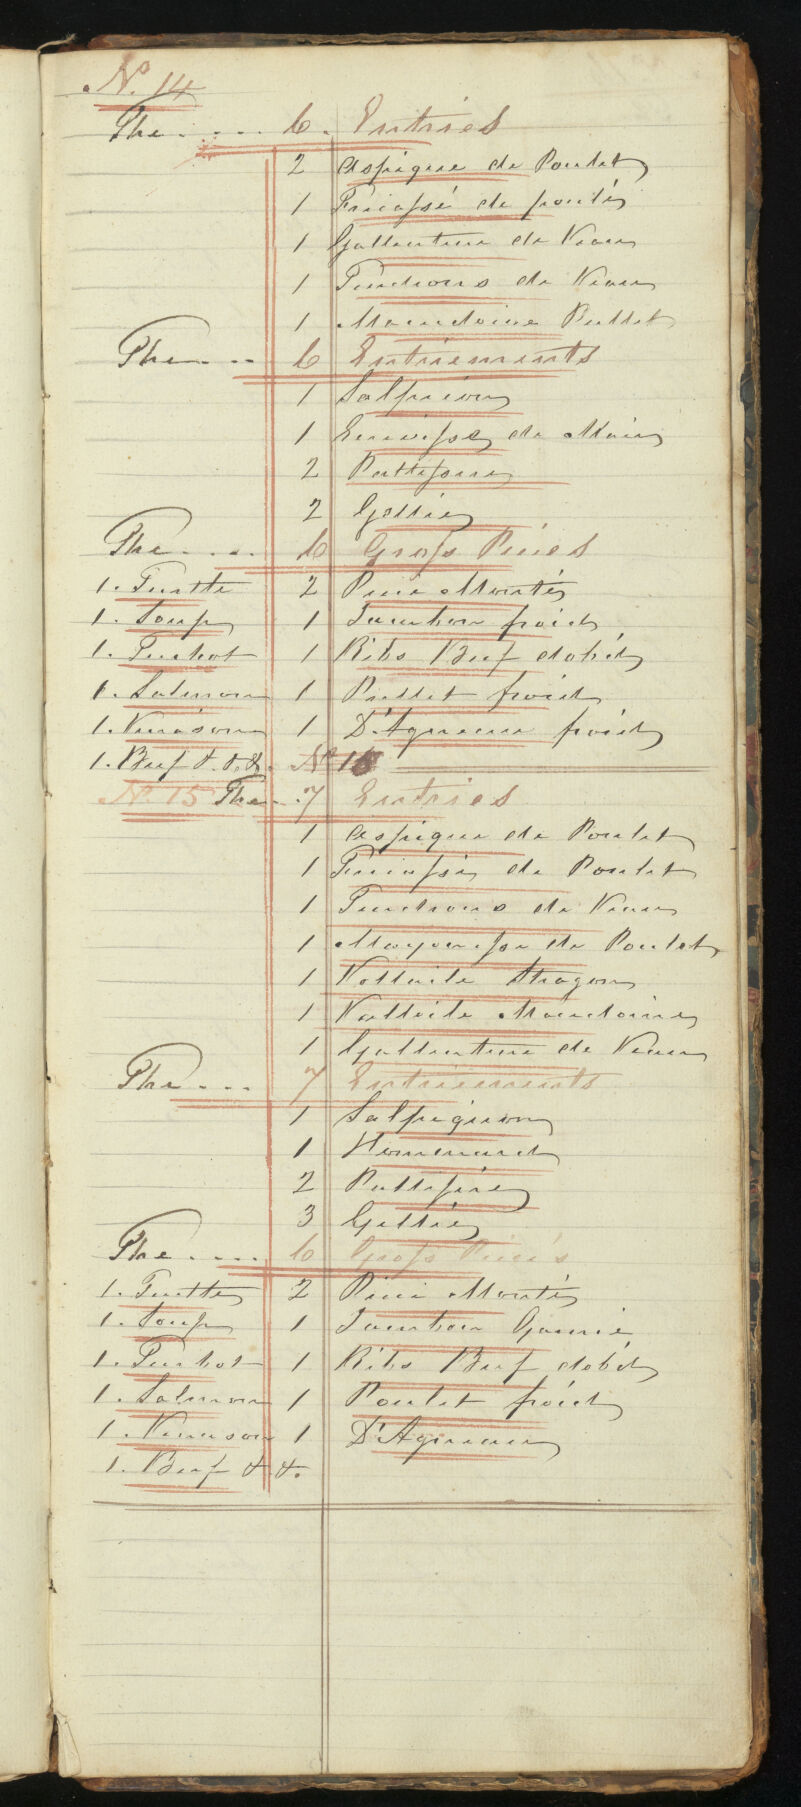 No. 14
The .... 6. Entries
2 Aspique de Poulet
1 Fricassé de poulés
1 Gallentine de Veau
1 Tendrons de Veau
1 Macedoine Pullet
The ... 6 Entriements
1 Salpicon
1 de Main
2 Pattesserie
2 Gellies
The .... 6 Gross Pieces
1. Turtle 2 Piece Montés
1. Soup 1 Jambon froid
1. Turbot 1 Ribs Buf dobéd
1. Salmon 1 Pullet froid
1. Venason 1 D'Agneau froid
1. Buf &.&.&. No 15
No. 15 The ... 7 Entries
1 Aspique de Poulet
1 Fricassé de Poulet
1 Tendrons de Veau
1 Mayonesse de Poulet
1 Vollaile Aragon
1 Vollaile Macedoine
1 Gallentine de Veau
The .... 7 Entriements
1 Salpiguon
1 Homerard
2 Pattesirie
3 Gellies
The ..... 6 Gross Piecis
1. Turtle 2 Piece Montés
1. Soup 1 Jambon Garnie
1. Turbot 1 Ribs Buf dobéd
1. Salmon 1 Poulet froid
1. Venason 1 D'Agneau
1. Buf & &.